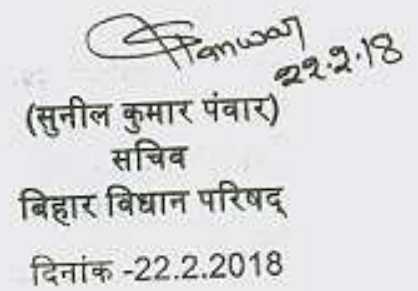 Panwar
22.2.18
(सुनील कुमार पंवार)
सचिव
बिहार विधान परिषद्
दिनांक -22.2.2018